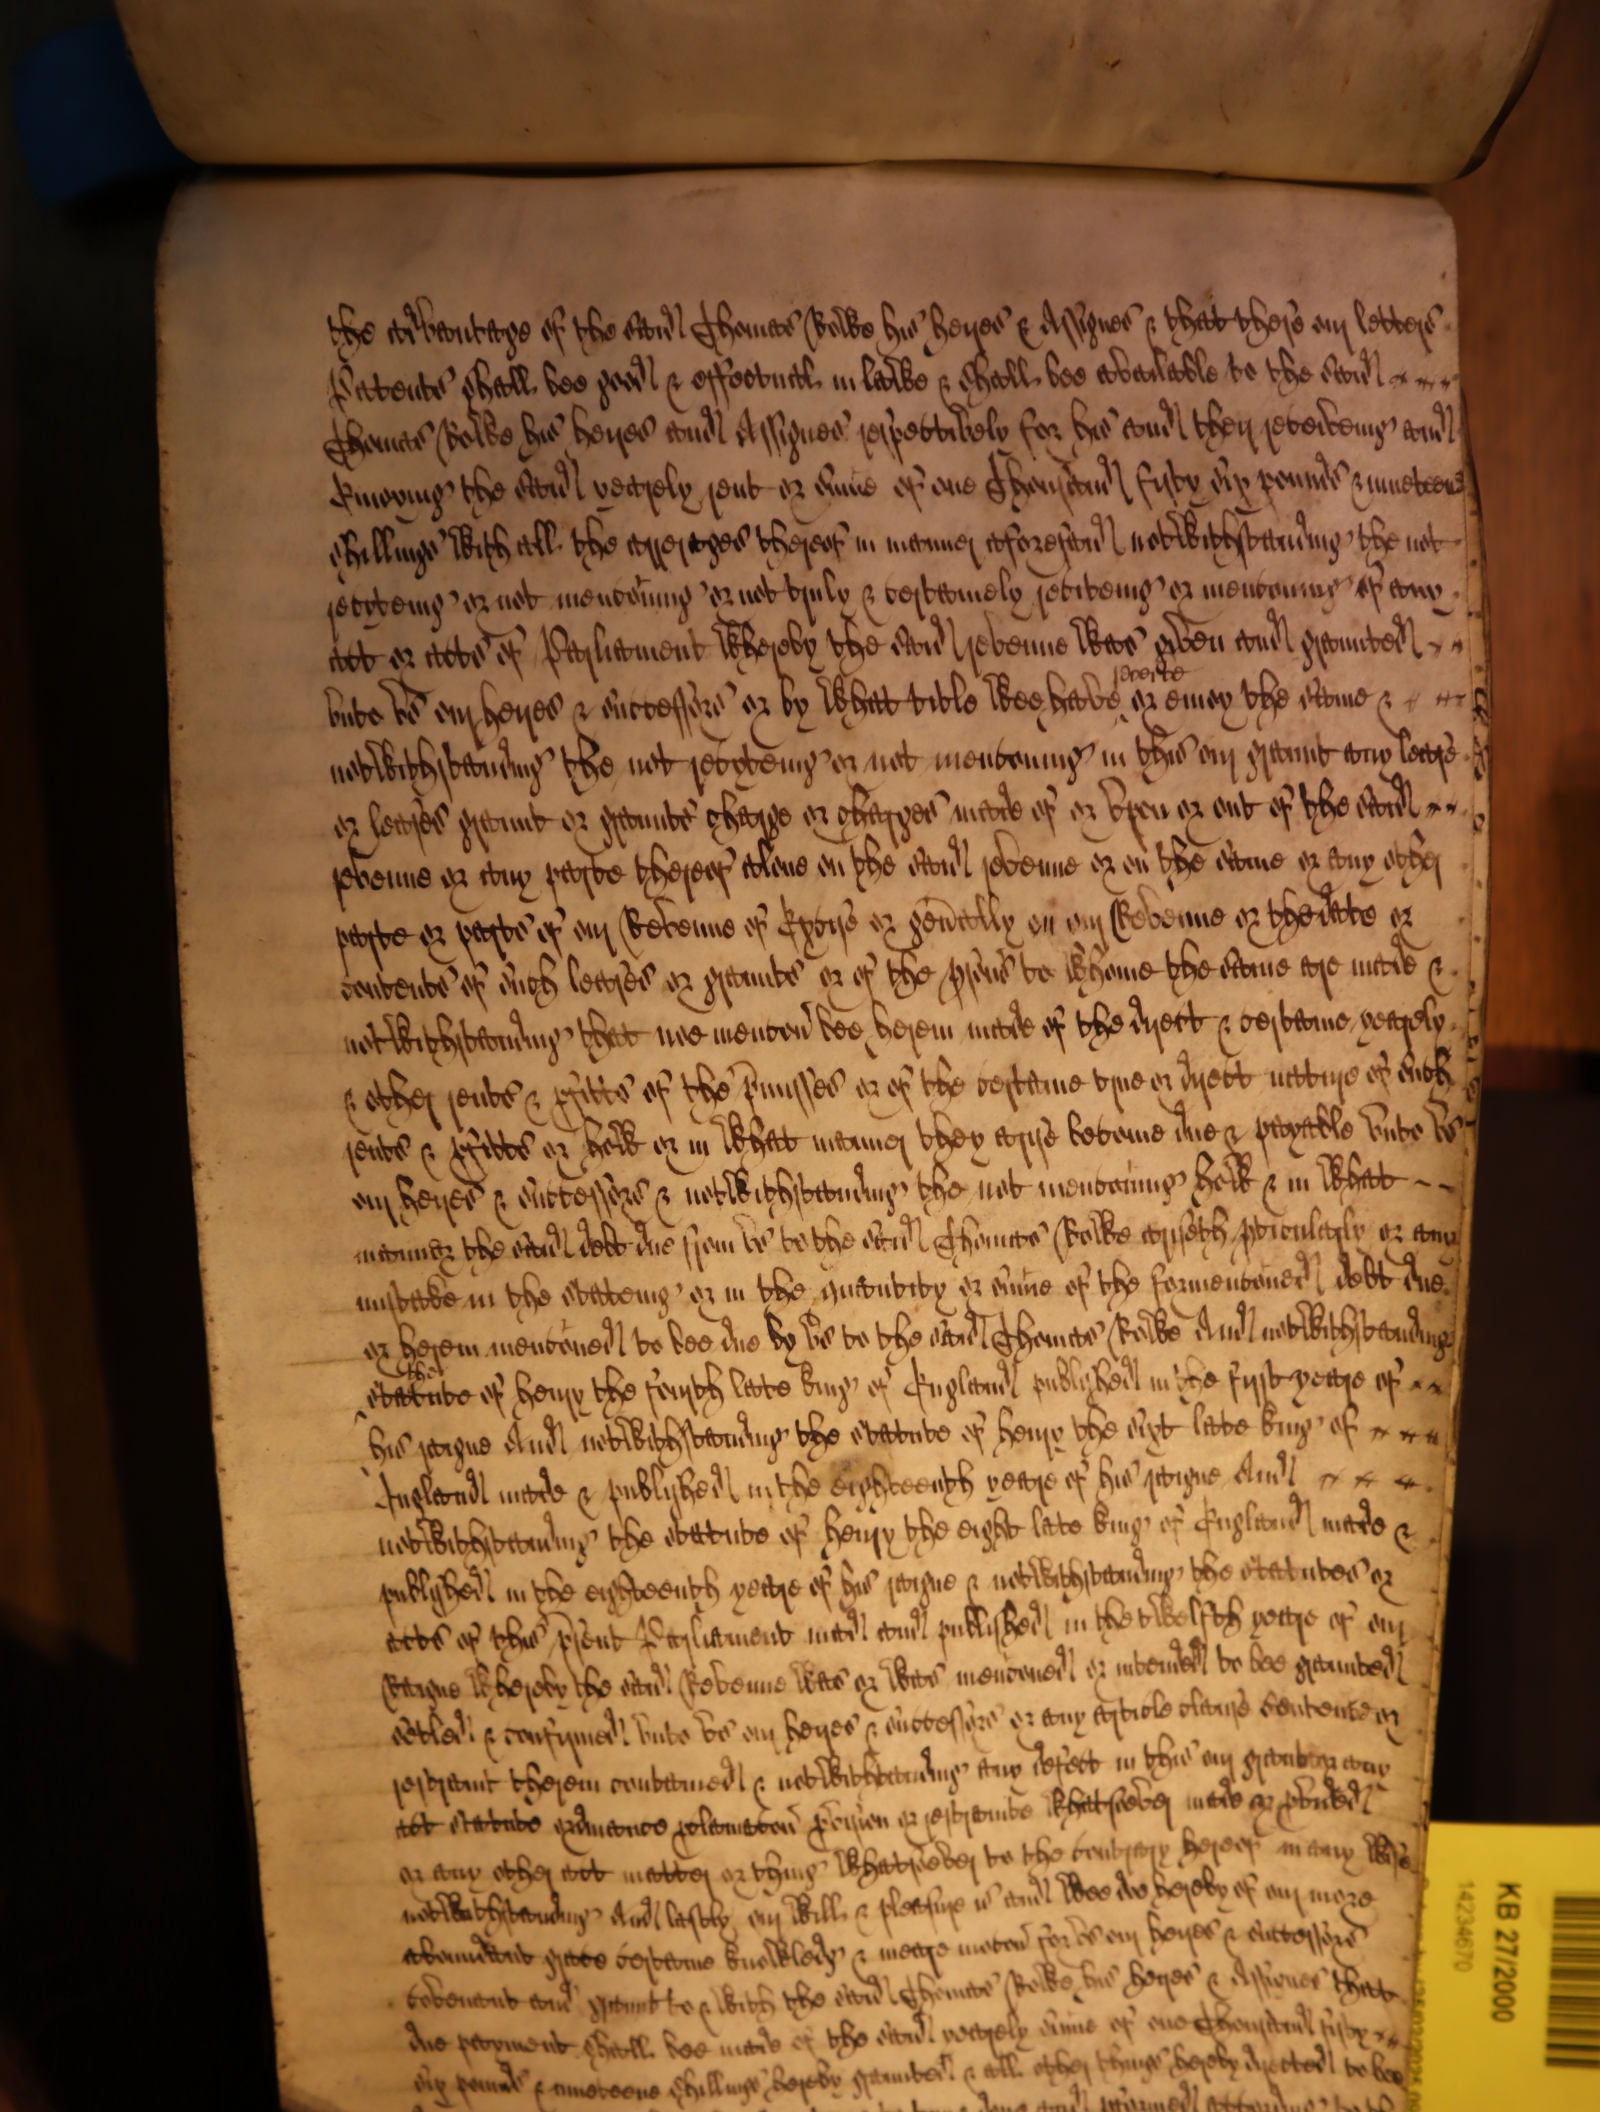 the advantage of the said Thomas Rolfe his heyres & Assignes & that these our letters
Patents shall bee good & effectuall in lawe & shall bee available to the said
Thomas Rolfe his heyres and Assignes respectively for his and their receiveing and
Enioying the said yearely rent or sume of one Thousand fifty six pounds & nineteene
shillings with all the arrerages thereof in manner aforesaid notwithstanding the not
reciteing or not menconing or not truly & certainely reciteing or menconing of any
act or acts of Parliament whereby the said revenue was given and granted
unto us our heyres & successors or by what title wee have or enioy the same &
notwithstanding the not reciteing or not menconing in this our graunt any lease
or leases graunt or graunts charge or charges made of or upon or out of the said
revenue or any parte thereof alone on the said revenue or on the same or any other
parte or parts of our Revenue of Excise or generally on our Revenue or the date or
contents of such leases or graunts or of the psons to whome the same are made &
notwithstanding that noe mencon bee herein made of the direct & certaine yearely
& other rents & pfitts of the pmisses or of the certaine true or direct nature of such
rents & pfitts or how or in what manner they arise become due & payable unto us
our heyres & successors & notwithstanding the not menconing how & in what
manner the said debt due from us to the said Thomas Rolfe ariseth pticulerly or any
mistake in the stateing or in the quantity or sume of the formenconed debt due
or herein menconed to bee due by us to the said Thomas Rolfe And notwithstanding
the
statute of henry the fourth late king of England published in the first yeare of
his raigne And notwithstanding the statute of henry the sixt late king of
England made & published in the eighteenth yeare of his raigne And
notwithstanding the statute of henry the eight late king of England made &
published in the eighteenth yeare of his raigne & notwithstanding the statutes or
acts of this psent Parliament made and published in the twelfth yeare of our
Raigne whereby the said Revenue was or was menconed or intended to bee graunted
setled & confirmed unto us our heyres & successors or any article clause sentence or
restraint therein contained & notwithstanding any defect in this our graunt or any
act statute ordinance pclamacon pvision or restrainte whatsoever made or pvided
or any other act matter or thing whatsoever to the contrary hereof in any wise
notwithstanding And lastly our will & pleasure is and wee doe hereby of our more
abundant grace certaine knowledg & meere mocon for us our heyres & successors
covenant and graunt to & with the said Thomas Rolfe his heyres & Assignes that
due payment shall bee made of the said yearely sume of one Thousand fifty
six pounds & nineteene shillings hereby graunted & all other things hereby directed to bee
KB 27/2000
14234670